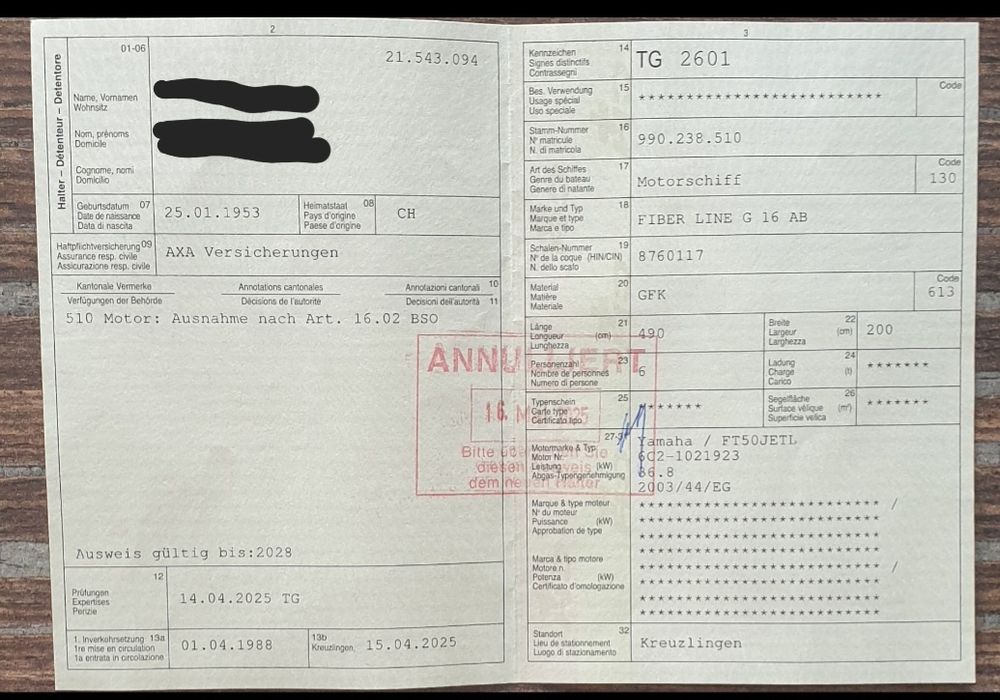 2
Halter – Détenteur – Detentore
01-06
21.543.094
Name, Vornamen
Wohnsitz
Nom, prénoms
Domicile
Cognome, nomi
Domicilio
Geburtsdatum 07
Date de naissance
Data di nascita
25.01.1953
Heimatstaat 08
Pays d'origine
Paese d'origine
CH
Haftpflichtversicherung 09
Assurance resp. civile
Assicurazione resp. civile
AXA Versicherungen
Kantonale Vermerke Annotations cantonales Annotazioni cantonali 10
Verfügungen der Behörde Décisions de l'autorité Decisioni dell'autorità 11
510 Motor: Ausnahme nach Art. 16.02 BSO
Ausweis gültig bis:2028
12
Prüfungen
Expertises
Perizie
14.04.2025 TG
1. Inverkehrsetzung 13a
1re mise en circulation
1a entrata in circolazione
01.04.1988
13b
Kreuzlingen, 15.04.2025
ANNULLIERT
16.
Bitte
diesen
dem neuen Halter
3
Kennzeichen 14
Signes distinctifs
Contrassegni
TG 2601
Bes. Verwendung 15
Usage spécial
Uso speciale
**************************
Code
Stamm-Nummer 16
N° matricule
N. di matricola
990.238.510
Art des Schiffes 17
Genre du bateau
Genere di natante
Motorschiff
Code
130
Marke und Typ 18
Marque et type
Marca e tipo
FIBER LINE G 16 AB
Schalen-Nummer 19
N° de la coque (HIN/CIN)
N. dello scafo
8760117
Material 20
Matière
Materiale
GFK
Code
613
Länge 21
Longueur (cm)
Lunghezza
490
Breite 22
Largeur (cm)
Larghezza
200
Personenzahl 23
Nombre de personnes
Numero di persone
6
Ladung 24
Charge (t)
Carico
*******
Typenschein 25
Carte type
Certificato tipo
*******
Segelfläche 26
Surface vélique (m²)
Superficie velica
*******
Motormarke & Typ
Motor Nr.
Leistung (kW)
Abgas-Typengenehmigung
Yamaha / FT50JETL
6C2-1021923
36.8
2003/44/EG
Marque & type moteur
N° du moteur
Puissance (kW)
Approbation de type
************************** /
**************************
**************************
**************************
Marca & tipo motore
Motore n.
Potenza (kW)
Certificato d'omologazione
************************** /
**************************
**************************
**************************
Standort 32
Lieu de stationnement
Luogo di stazionamento
Kreuzlingen